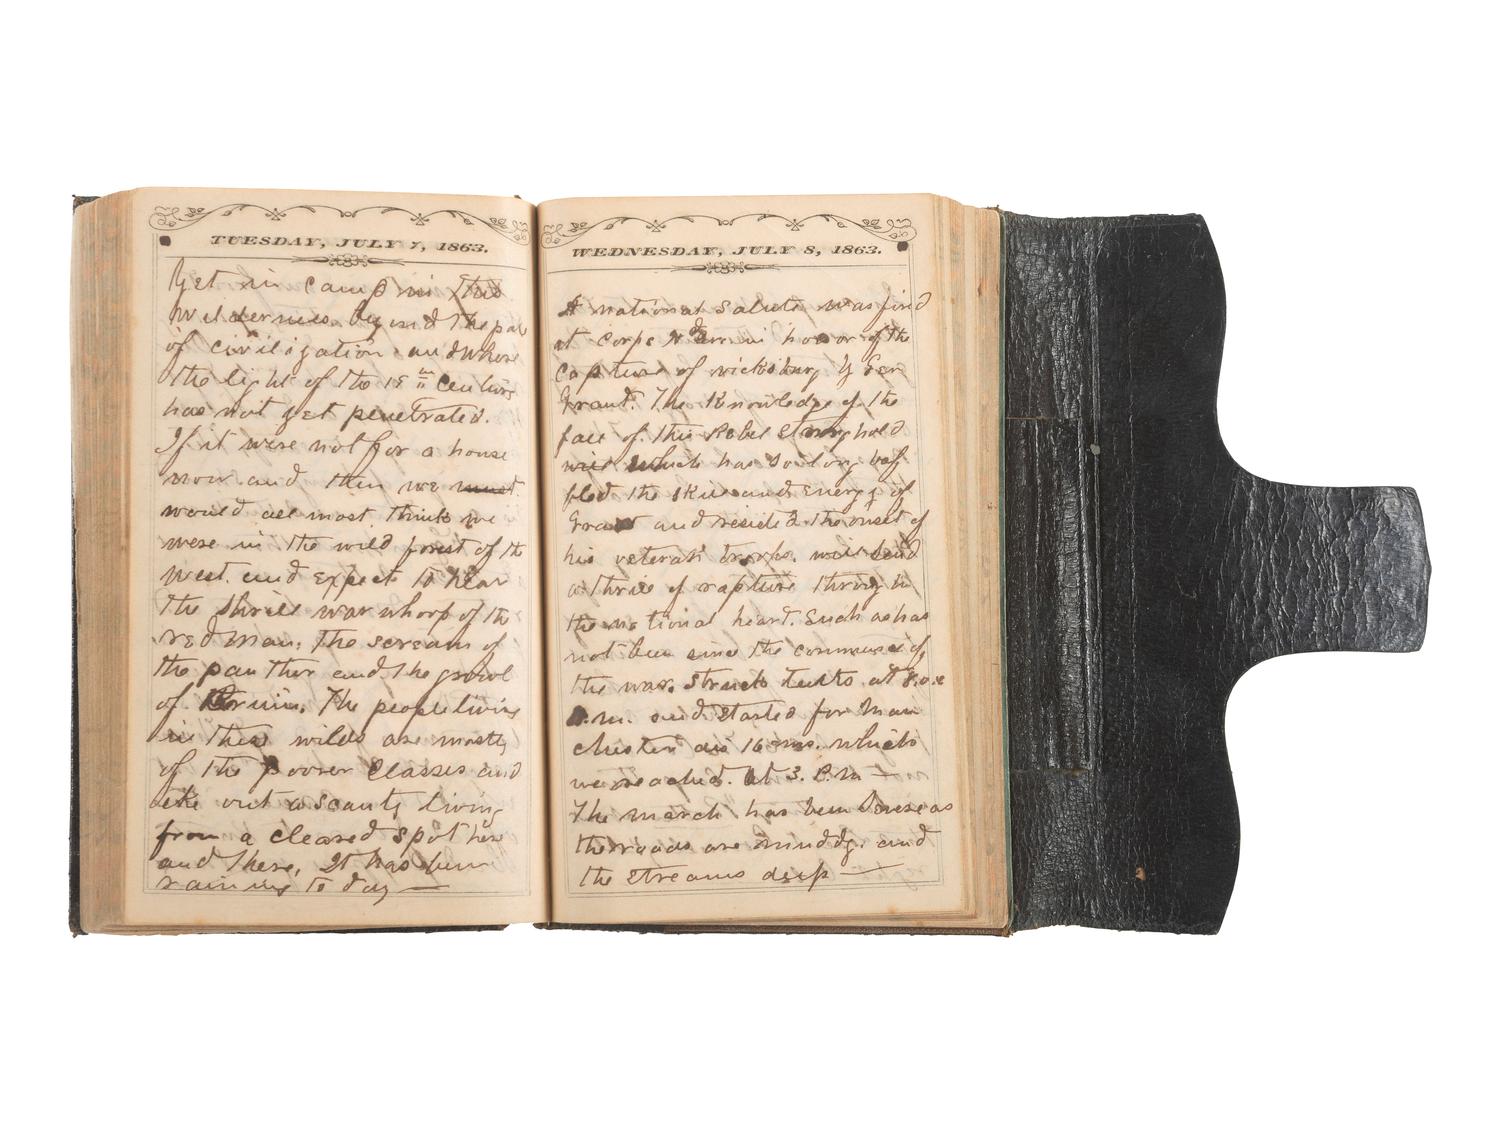 TUESDAY, JULY 7, 1863.
Yet in camp in this
wilderness. beyond the pal
of civilization and where
the light of the 19th Century
has not yet penetrated.
If it were not for a house
now and then we must
would all most think we
were in the wild forest of the
West. and expect to hear
the shrill war whoop of the
red man, the scream of
the panther and the growl
of Bruin. The people living
in these wilds are mostly
of the poorer Classes and
eke out a scanty living
from a cleared spot here
and there. It has been
raining to day —
WEDNESDAY, JULY 8, 1863.
A national salute was fired
at corps in honor of the
Capture of vicksburg by Gen
Grant. The Knowledge of the
fall of this Rebel Stronghold
which has so long baf
fled the skill and energy of
Grant and resisted the onset of
his veteran troops. will send
a thrill of rapture through
the national heart. Such as has
not been since the commence of
the war. Struck tents at
A.m. and Started for Man
chester 16 ms. which
we reached. At 3. P.M —
The march has been Severe as
the roads are muddy. and
the Streams deep —